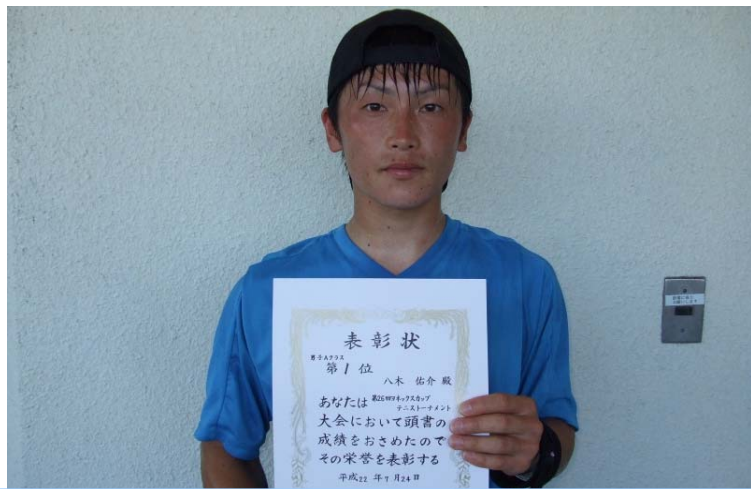 表彰状
男子Aクラス
第1位
八木 佑介 殿
あなたは 第26回ヨネックスカップ
テニストーナメント
大会において頭書の
成績をおさめたので
その栄誉を表彰する
平成22年7月24日